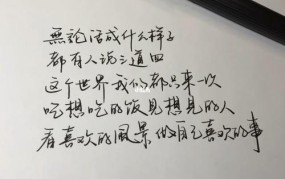 無论活成什么样子
都有人说三道四
这个世界我们都只来一次
吃想吃的饭见想见的人
看喜欢的風景做自己喜欢的事